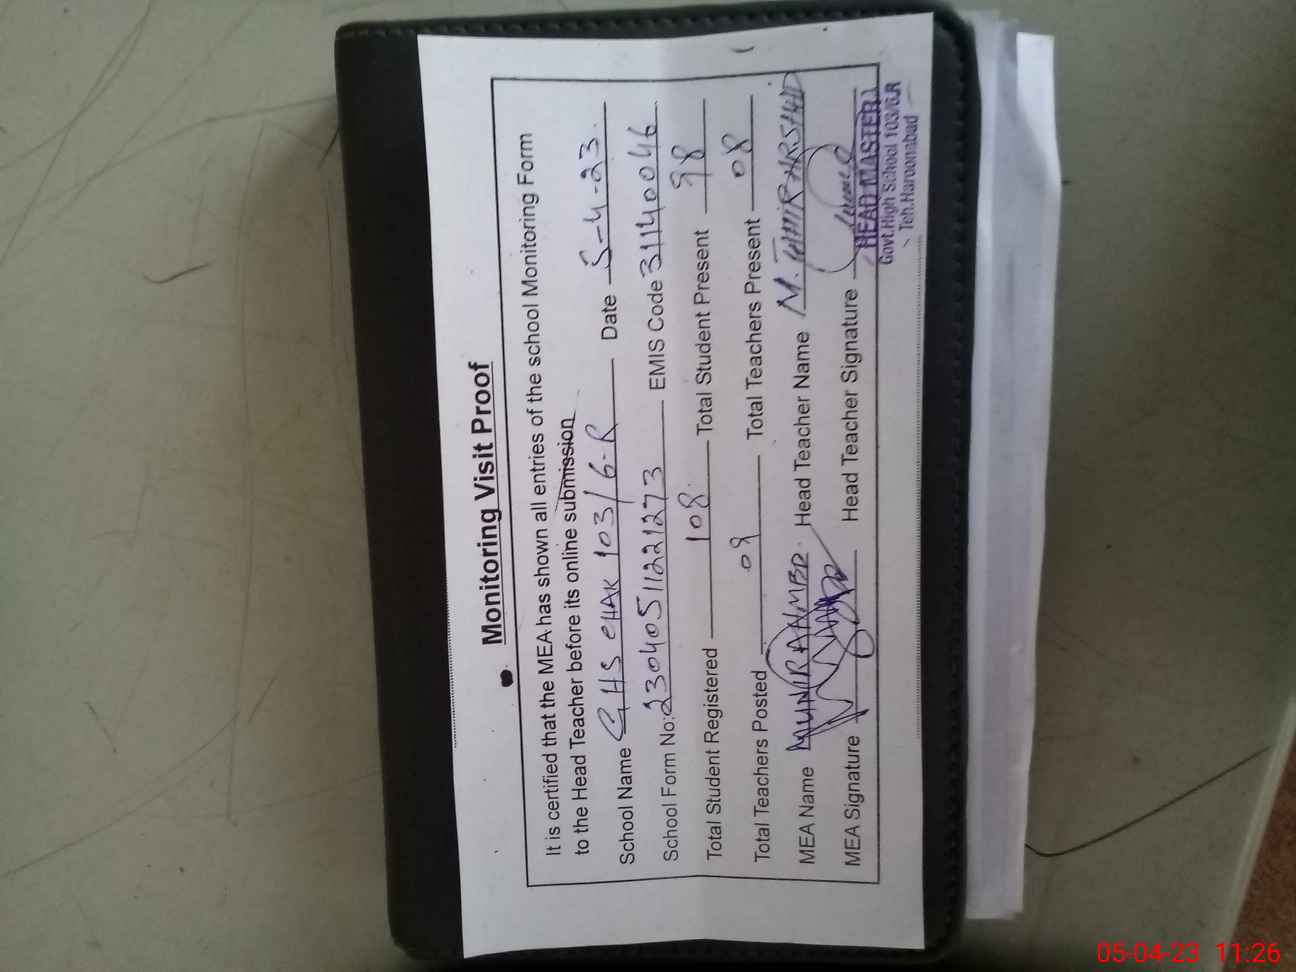 Monitoring Visit Proof
It is certified that the MEA has shown all entries of the school Monitoring Form
to the Head Teacher before its online submission
School Name GHS CHAK 103/6-R Date 5-4-23.
School Form No: 23040511221273 EMIS Code 31140046
Total Student Registered 108 Total Student Present 98
Total Teachers Posted 09 Total Teachers Present 08
MEA Name MUNIR AHMED. Head Teacher Name M. ARSHAD
MEA Signature Head Teacher Signature
HEAD MASTER
Govt.High School 103/6R
Teh.Haroonabad
05-04-23 11:26